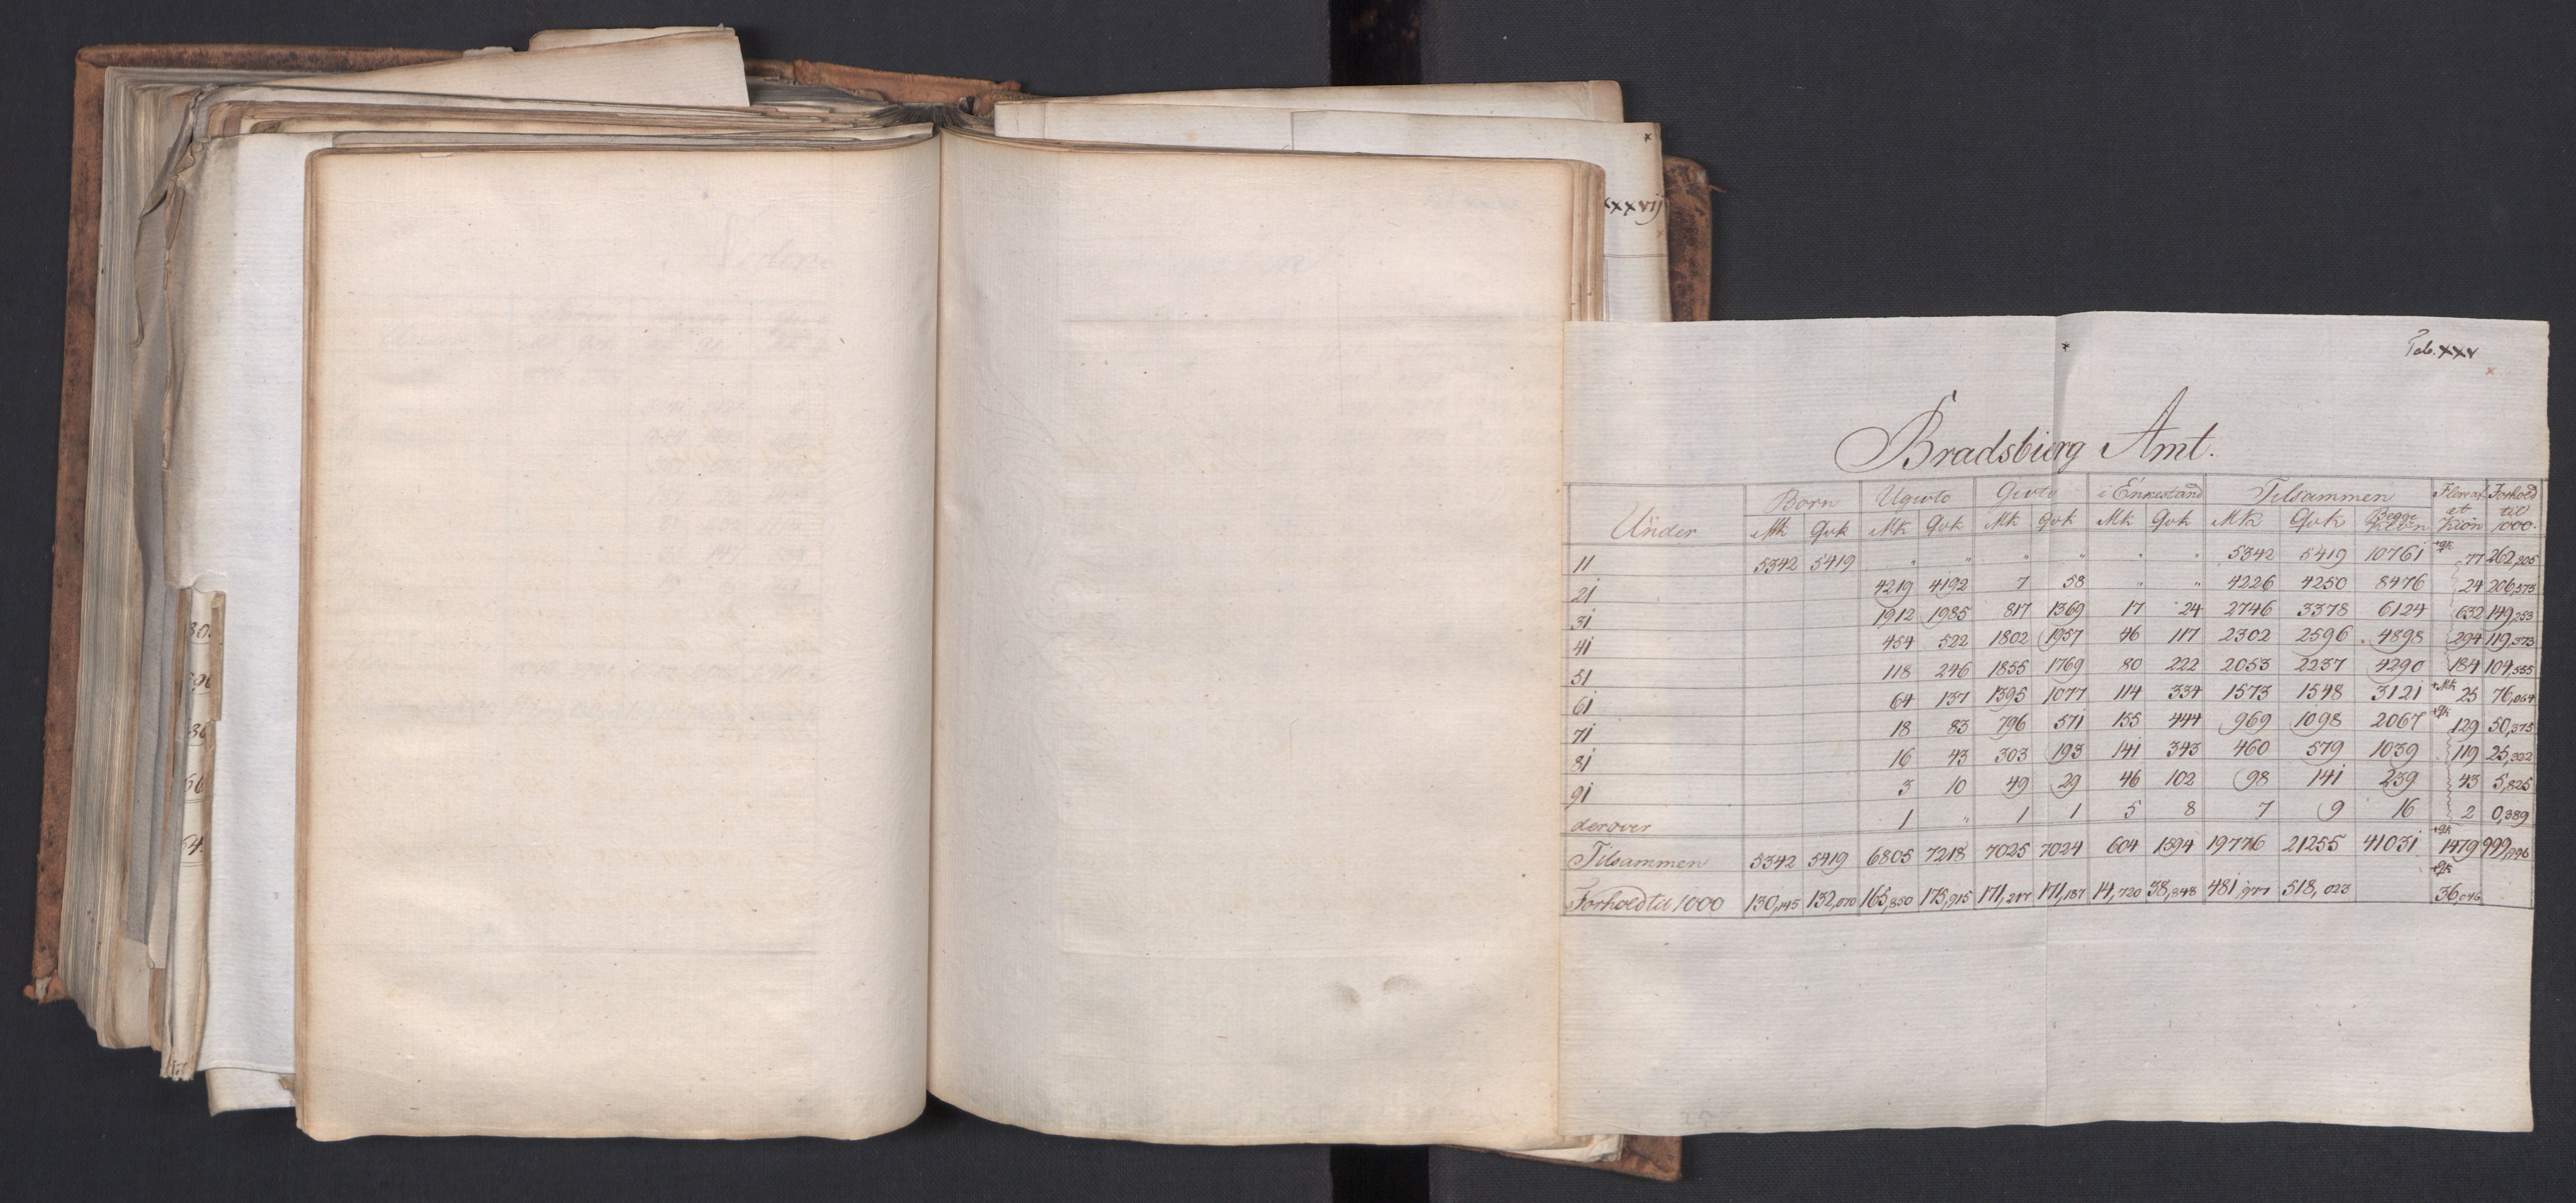 xxxvij
Tab. xxv
Bradsbierg Amt.
Under | Børn | Ugivte | Givte | i Enkestand | Tilsammen | Flere af et Kiøn | Forhold til 1000.
Mk | Qvk | Mk | Qvk | Mk | Qvk | Mk | Qvk | Mk | Qvk | Begge Kiøn
11 | 5342 | 5419 | " | " | " | " | " | " | 5342 | 5419 | 10761 | +Qk 77 | 262,205
21 | 4219 | 4192 | 7 | 58 | " | " | 4226 | 4250 | 8476 | 24 | 206,573
31 | 1912 | 1985 | 817 | 1369 | 17 | 24 | 2746 | 3378 | 6124 | 632 | 149,253
41 | 454 | 522 | 1802 | 1957 | 46 | 117 | 2302 | 2596 | 4898 | 294 | 119,373
51 | 118 | 246 | 1855 | 1769 | 80 | 222 | 2053 | 2237 | 4290 | 184 | 104,555
61 | 64 | 137 | 1395 | 1077 | 114 | 334 | 1573 | 1548 | 3121 | +Mk 25 | 76,064
71 | 18 | 83 | 796 | 571 | 155 | 444 | 969 | 1098 | 2067 | +Qk 129 | 50,375
81 | 16 | 43 | 303 | 193 | 141 | 343 | 460 | 579 | 1039 | 119 | 25,322
91 | 3 | 10 | 49 | 29 | 46 | 102 | 98 | 141 | 239 | 43 | 5,825
derover | 1 | " | 1 | 1 | 5 | 8 | 7 | 9 | 16 | 2 | 0,389
Tilsammen | 5342 | 5419 | 6805 | 7218 | 7025 | 7024 | 604 | 1594 | 19776 | 21255 | 41031 | +Qk 1479 | 999,996
Forhold til 1000 | 130,145 | 132,070 | 165,850 | 175,915 | 171,217 | 171,187 | 14,720 | 38,848 | 481,977 | 518,023 | +Qk 36,046